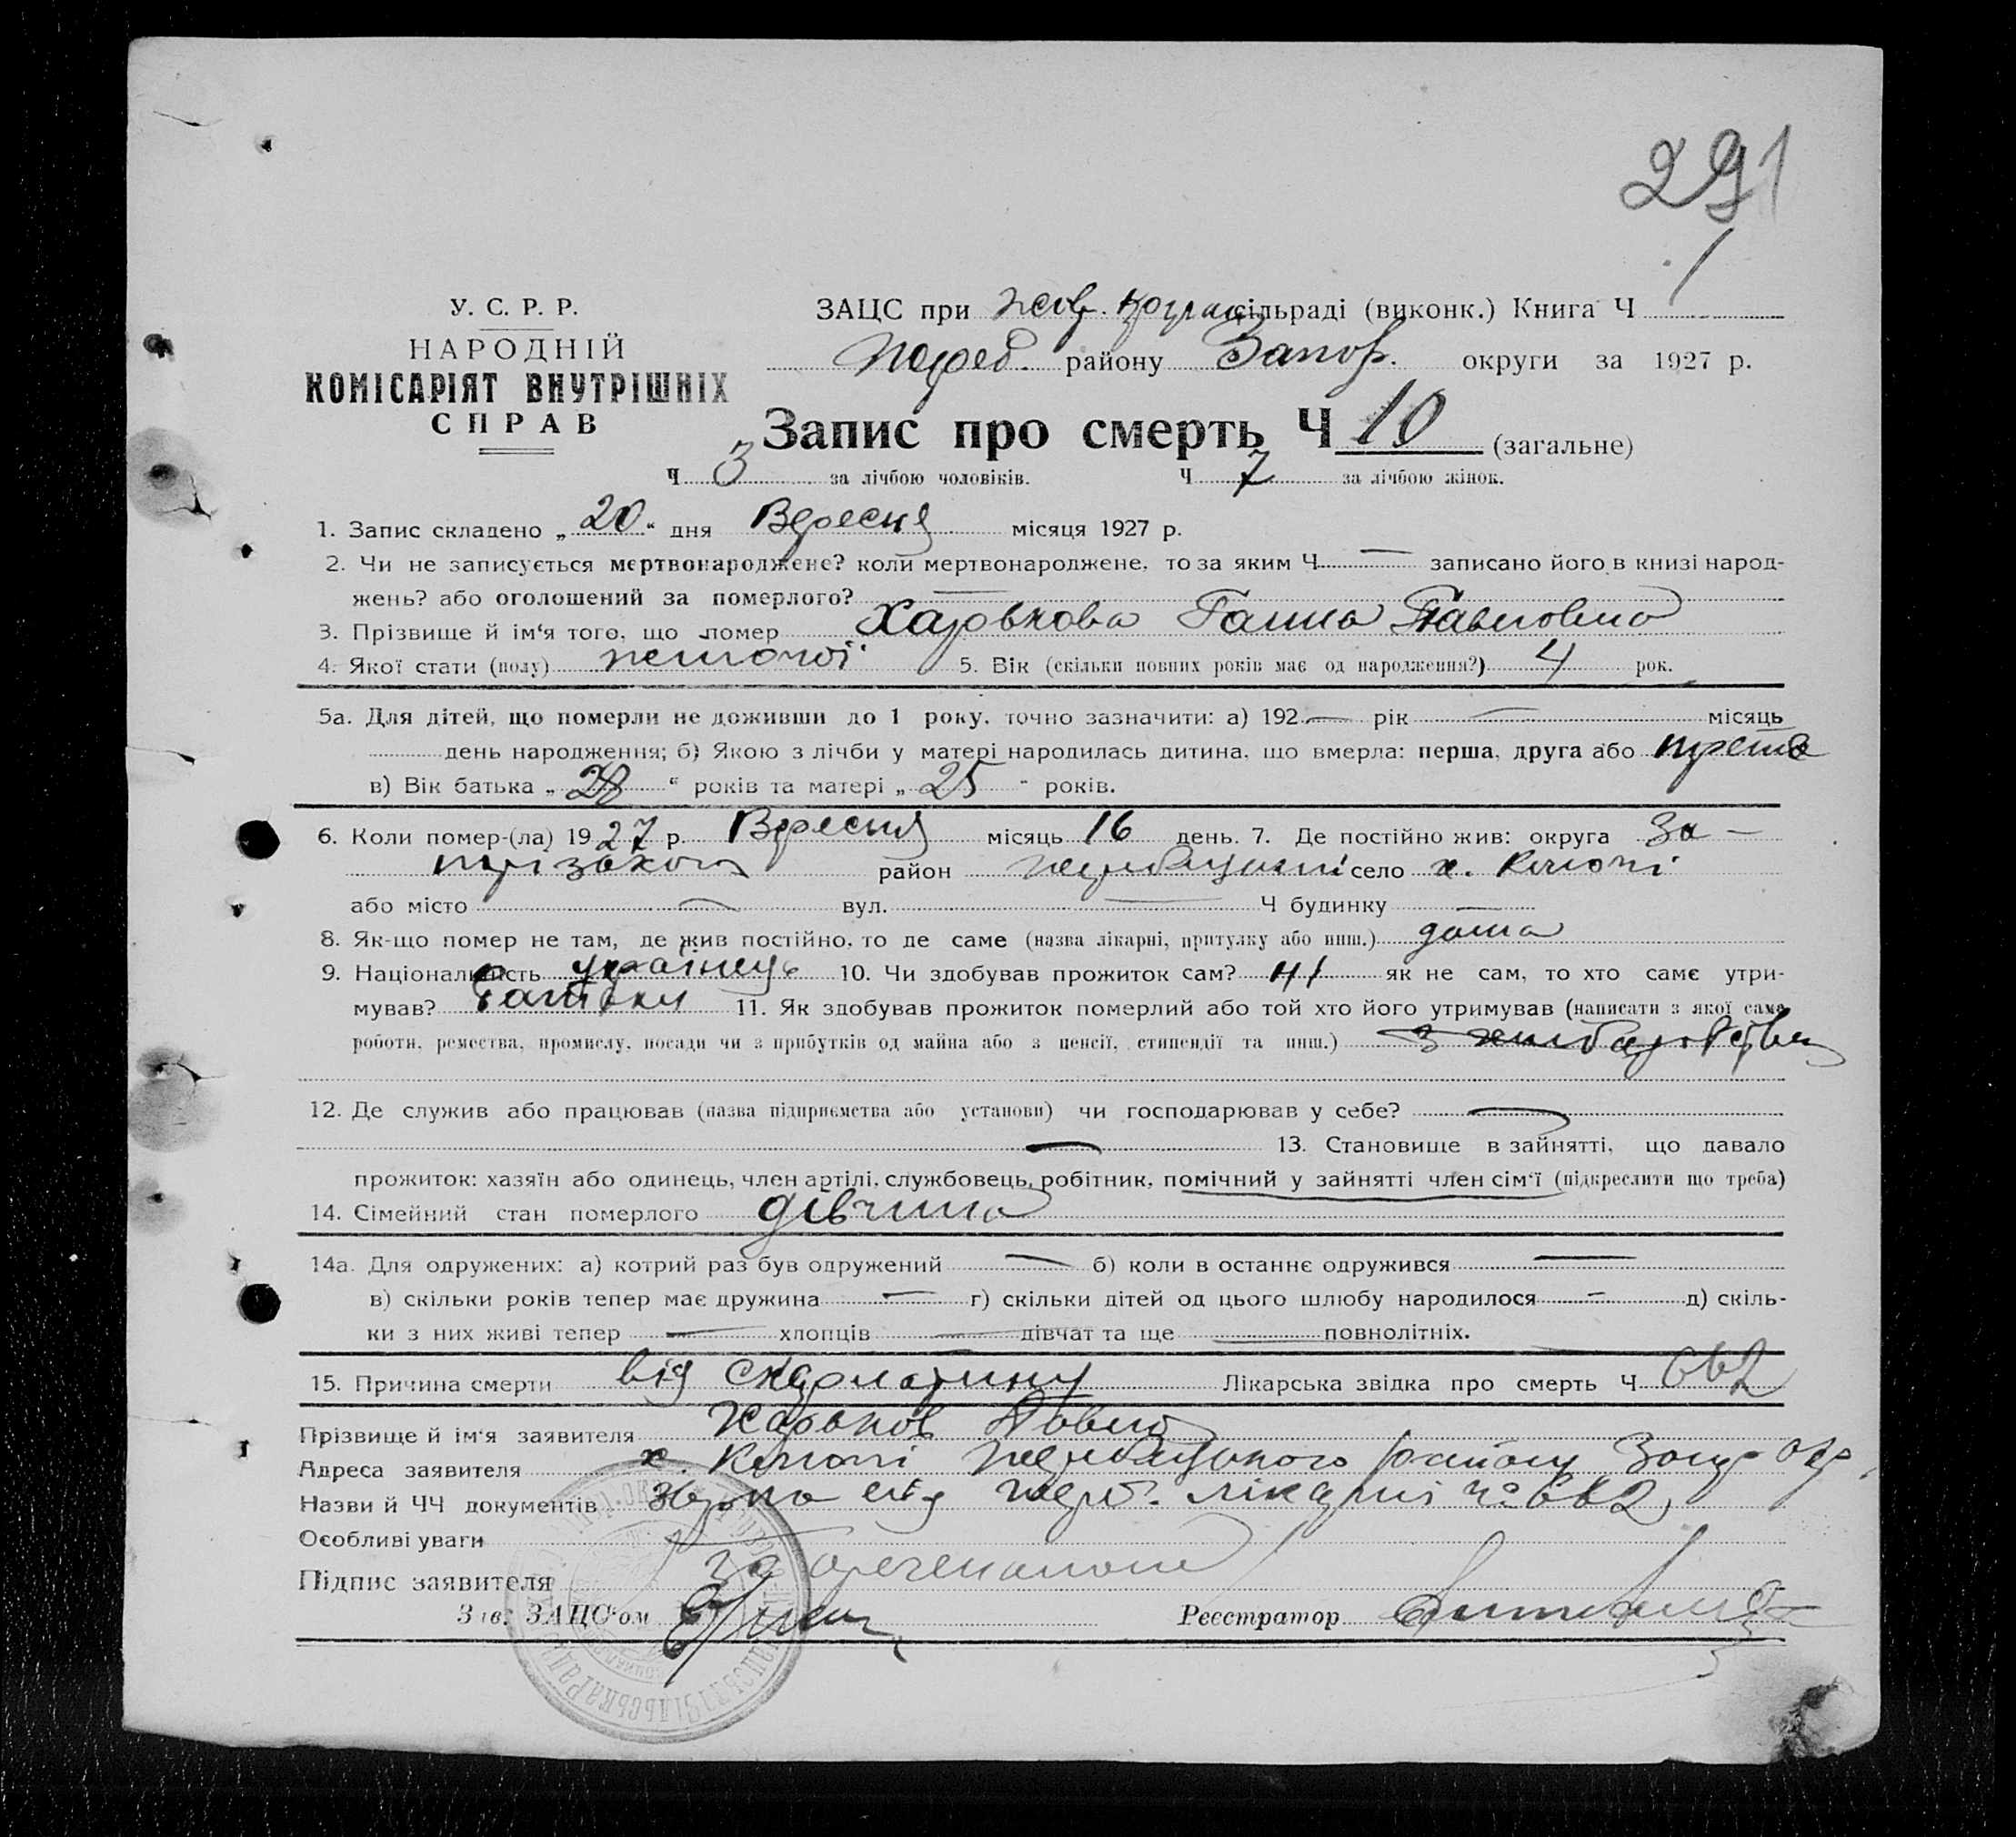 291
У. С. Р. Р.
НАРОДНІЙ
КОМІСАРІЯТ ВНУТРІШНІХ
СПРАВ
ЗАЦС при сільраді (виконк.) Книга Ч 1
району Запор. округи за 1927 р.
Запис про смерть Ч 10 (загальне)
Ч 3 за лічбою чоловіків. Ч 7 за лічбою жінок.
1. Запис складено „ 20 “ дня Вересня місяця 1927 р.
2. Чи не записується мертвонароджене? коли мертвонароджене, то за яким Ч — записано його в книзі народ-
жень? або оголошений за померлого? —
3. Прізвище й ім‘я того, що помер Харькова Ганна Павловна
4. Якої стати (полу) 5. Вік (скільки повних років має од народження?) 4 рок.
5а. Для дітей, що померли не доживши до 1 року, точно зазначити: а) 192 — рік — місяць
день народження; б) Якою з лічби у матері народилась дитина, що вмерла: перша, друга або третя
в) Вік батька „ 28 “ років та матері „ 25 “ років.
6. Коли помер-(ла) 19 27 р. Вересня місяць 16 день. 7. Де постійно жив: округа За-
район село х.
або місто — вул. — Ч будинку —
8. Як-що помер не там, де жив постійно, то де саме (назва лікарні, притулку або инш.) дома
9. Національність українець 10. Чи здобував прожиток сам? ні як не сам, то хто саме утри-
мував? батьки 11. Як здобував прожиток померлий або той хто його утримував (написати з якої саме
роботи, ремества, промислу, посади чи з прибутків од майна або з пенсії, стипендії та инш.) з хліборобства
12. Де служив або працював (назва підприємства або установи) чи господарював у себе? —
— 13. Становище в зайнятті, що давало
прожиток: хазяїн або одинець, член артілі, службовець, робітник, помічний у зайнятті член сім‘ї (підкреслити що треба)
14. Сімейний стан померлого дівчина
14а. Для одружених: а) котрий раз був одружений — б) коли в останнє одружився —
в) скільки років тепер має дружина — г) скільки дітей од цього шлюбу народилося — д) скіль-
ки з них живі тепер — хлопців — дівчат та ще — повнолітніх.
15. Причина смерти від скарлатину Лікарська звідка про смерть Ч 662
Прізвище й ім‘я заявителя Харьков Павло
Адреса заявителя х. району
Назви й ЧЧ документів лікарні № 662
Особливі уваги
Підпис заявителя
Зав. ЗАЦС‘ом Реєстратор